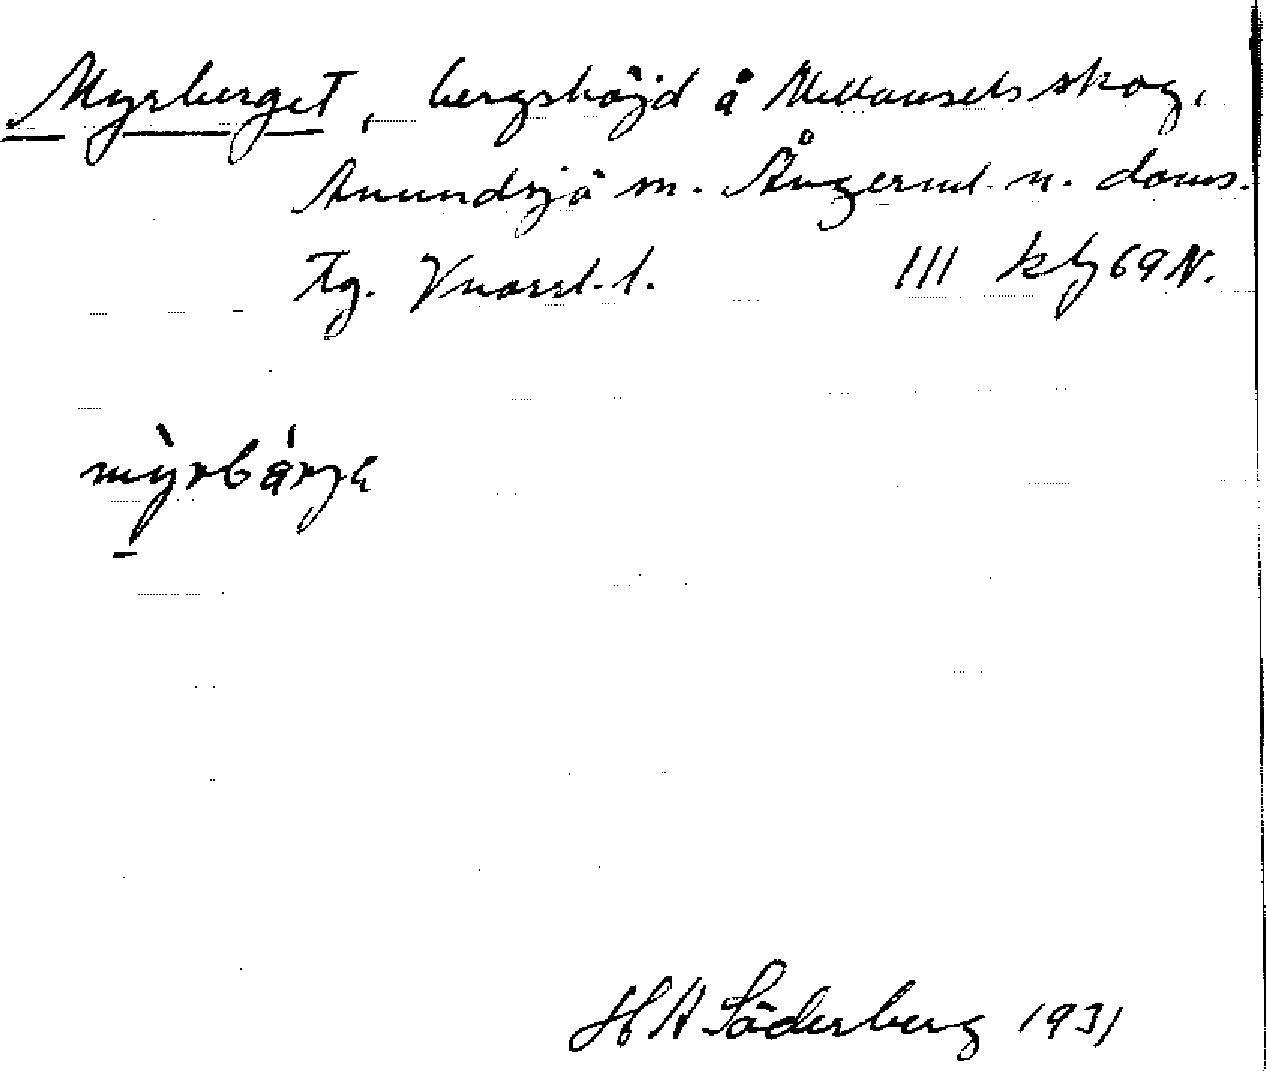 Myrberget, bergshöjd å Mellansels skog,
Anundsjö sn. Ångerml. n. doms.
tg. Vnorrl. l. III kbl 69 N.
mỳrbárjə
H A Söderberg 1931